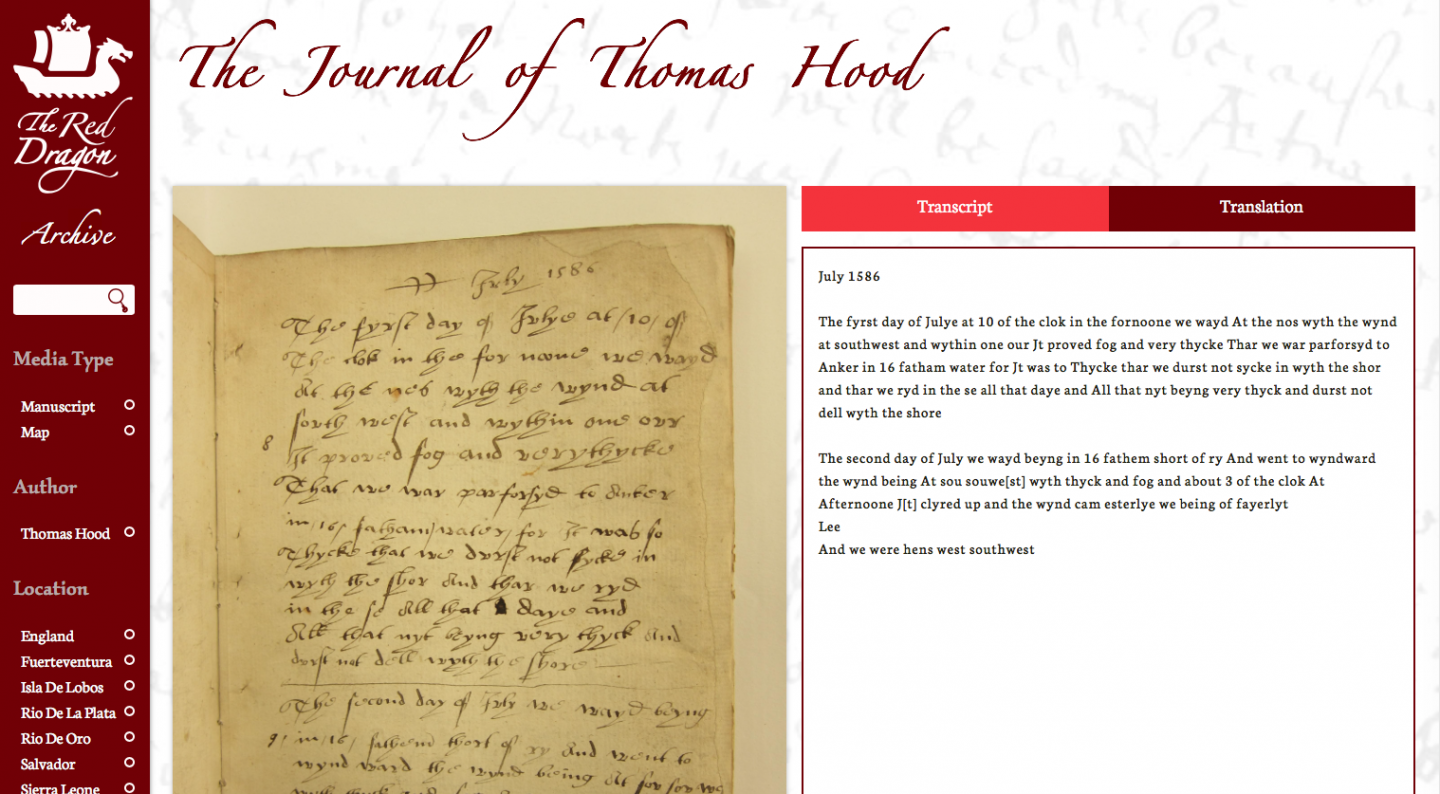 The Red
Dragon
Archive
Media Type
Manuscript
Map
Author
Thomas Hood
Location
England
Fuerteventura
Isla De Lobos
Rio De La Plata
Rio De Oro
Salvador
Sierra Leone
The Journal of Thomas Hood
July 1586
The fyrst day of Julye at /10/ of
The clok in the for noone we wayd
At the nos wyth the wynd at
south west and wythin one our
8
Jt proved fog and very thycke
Thar we war parforsyd to Anker
in /16/ fatham water for Jt was so
Thycke that we durst not sycke in
wyth the shor And thar we ryd
in the se All that daye and
All that nyt beyng very thyck And
durst not dell wyth the shore
The second day of July we wayd beyng
9/ in /16/ fathem short of ry And went to
wynd ward the wynd being At sou sou we
Transcript
Translation
July 1586
The fyrst day of Julye at 10 of the clok in the fornoone we wayd At the nos wyth the wynd
at southwest and wythin one our Jt proved fog and very thycke Thar we war parforsyd to
Anker in 16 fatham water for Jt was to Thycke thar we durst not sycke in wyth the shor
and thar we ryd in the se all that daye and All that nyt beyng very thyck and durst not
dell wyth the shore
The second day of July we wayd beyng in 16 fathem short of ry And went to wyndward
the wynd being At sou souwe[st] wyth thyck and fog and about 3 of the clok At
Afternoone J[t] clyred up and the wynd cam esterlye we being of fayerlyt
Lee
And we were hens west southwest